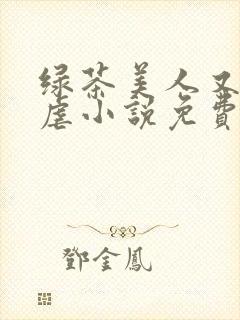 绿茶美人又
虐小說免費
鄧金鳳